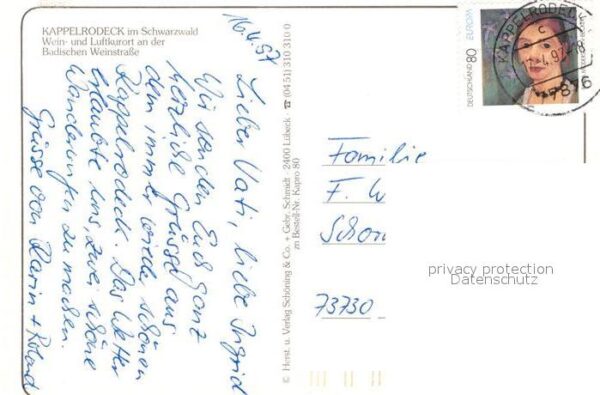 KAPPELRODECK im Schwarzwald
Wein- und Luftkurort an der
Badischen Weinstraße
16.4.97
Lieber Vati, liebe Ingrid
Wir senden Euch ganz
herzliche Grüsse aus
dem immer wieder schönen
Kappelrodeck. Das Wetter
erlaubte uns, zwei schöne
Wanderungen zu machen.
Grüsse von Karin + Roland
© Herst. u. Verlag Schöning & Co. + Gebr. Schmidt · 2400 Lübeck · ☎ (04 51) 310 310 0
zu Bestell-Nr. Kapro 80
DEUTSCHLAND 80 EUROPA
KAPPELRODECK
c
Familie
F. W
Schon
73730
privacy protection
Datenschutz